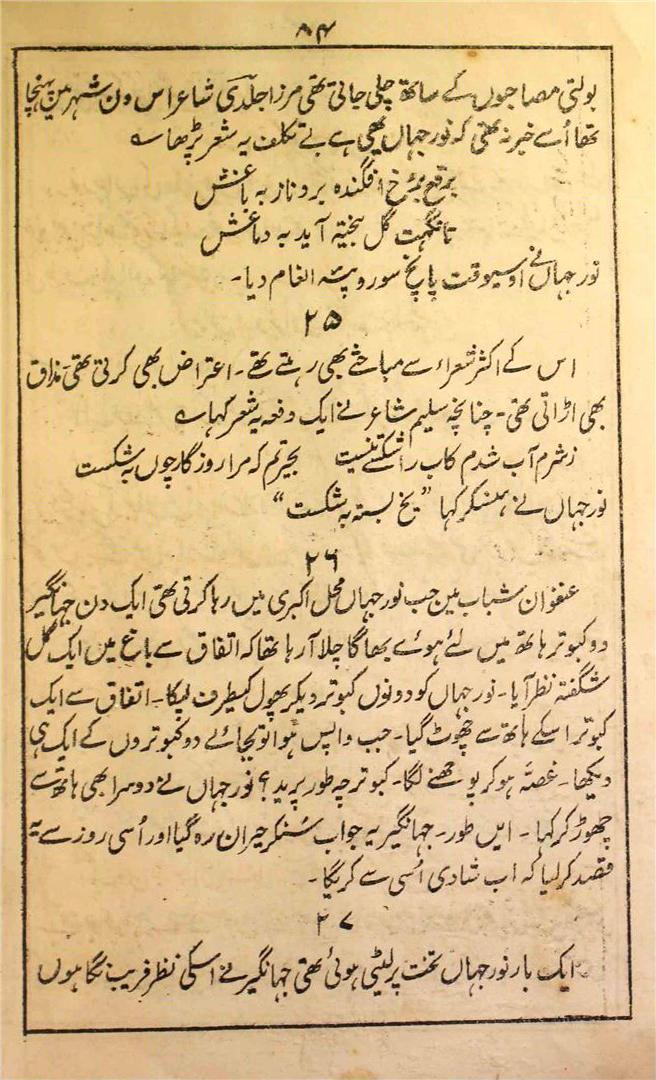 ۸۴
بولتی مصاحبوں کے ساتھ چلی جاتی تھی مرزا جلدی شاعر اس دن شہر مین پہنچا
تھا اُسے خبر نہ تھی کہ نور جہاں بھی ہے بے تکلف یہ شعر پڑھا ؎
برقع برُخ افگندہ برو ناز بہ باغش
تا نگہت گل بیختہ آید بہ دماغش
نور جہاں نے اوسیوقت پانچ سو روپیہ انعام دیا۔
۲۵
اس کے اکثر شعراء سے مباحثے بھی رہتے تھے۔ اعتراض بھی کرتی تھی مذاق
بھی اڑاتی تھی۔ چنانچہ سلیم شاعر نے ایک دفعہ یہ شعر کہا ؎
زشرم آب شدم کاب را شکستے نیست بحیرتم کہ مرا روزگار چوں بہ شکست
نور جہاں نے ہنسکر کہا ”یخ بستہ بہ شکست“
۲۶
عنفوان شباب مین جب نور جہاں محل اکبری میں رہا کرتی تھی ایک دن جہانگیر
دو کبوتر ہاتھ میں لئے ہوئے بھاگا چلا آرہا تھا کہ اتفاق سے باغ میں ایک گل
شگفتہ نظر آیا۔ نور جہاں کو دونوں کبوتر دیکر پھول کیطرف لپکا۔ اتفاق سے ایک
کبوتر اسکے ہاتھ سے چھوٹ گیا۔ جب واپس ہوا تو بجائے دو کبوتروں کے ایک ہی
دیکھا۔ غصّہ ہو کر پوچھنے لگا۔ کبوتر چہ طور پرید؟ نور جہاں نے دوسرا بھی ہاتھ سے
چھوڑ کر کہا۔ ایں طور۔ جہانگیر یہ جواب سُنکر حیران رہ گیا اور اُسی روز سے یہ
قصد کر لیا کہ اب شادی اُسی سے کریگا۔
۲۷
ایک بار نور جہاں تخت پر لیٹی ہوئی تھی جہانگیر نے اسکی نظر فریب نگاہوں